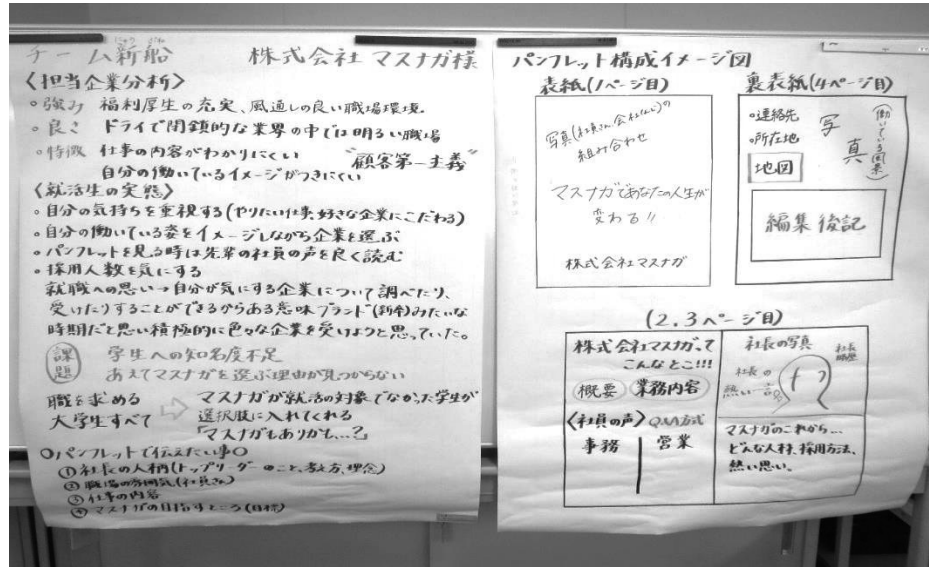 チーム新船 株式会社マスナガ様
にゅう ふね
〈担当企業分析〉
・強み 福利厚生の充実、風通しの良い職場環境。
・良さ ドライで閉鎖的な業界の中では明るい職場
・特徴 仕事の内容がわかりにくい
自分の働いているイメージがつきにくい
"顧客第一主義"
〈就活生の実態〉
・自分の気持ちを重視する(やりたい仕事、好きな企業にこだわる)
・自分の働いている姿をイメージしながら企業を選ぶ
・パンフレットを見る時は先輩の社員の声を良く読む
・採用人数を気にする
就職への思い→自分が気にする企業について調べたり、
受けたりすることができるからある意味ブランド(新卒)みたいな
時期だと思い積極的に色々な企業を受けようと思っていた。
課題
学生への知名度不足
あえてマスナガを選ぶ理由が見つからない
職を求める
大学生すべて
⇨
マスナガが就活の対象でなかった学生が
選択肢に入れてくれる
「マスナガもありかも…?」
○パンフレットで伝えたい事○
①社長の人柄(トップリーダーのこと、考え方、理念)
②職場の雰囲気(社員さん)
③仕事の内容
④マスナガの目指すところ(目標)
パンフレット構成イメージ図
表紙(1ページ目)
写真(社員さん、会社など)の
組み合わせ
マスナガであなたの人生が
変わる!!
株式会社マスナガ
裏表紙(4ページ目)
・連絡先
・所在地
地図
写真
(働いている風景)
編集後記
(2.3ページ目)
株式会社マスナガって
こんなとこ!!!
概要 業務内容
〈社員の声〉Q&A方式
事務 営業
社長の写真
社長の
熱い一言
社長
マスナガのこれから…
どんな人材、採用方法、
熱い思い。